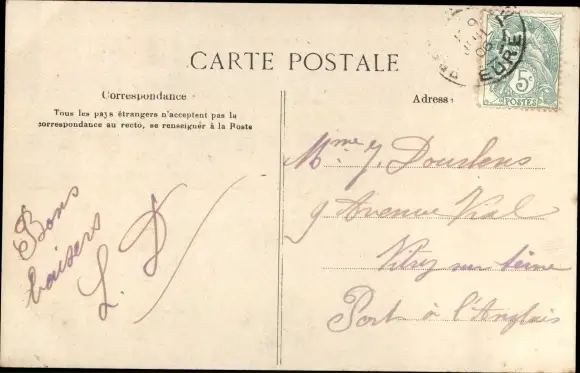 CARTE POSTALE
Correspondance
Tous les pays étrangers n'acceptent pas la
correspondance au recto, se renseigner à la Poste
Adresse
EURE
5c
POSTES
Bons
baisers
L. D
Mme J. Dourlens
9 Avenue Vial
Vitry sur Seine
Port à l'Anglais